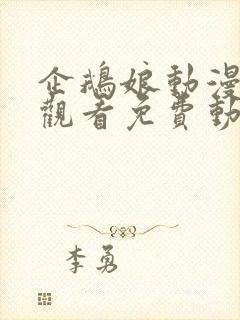 企鵝娘動漫
觀看免費動
李勇